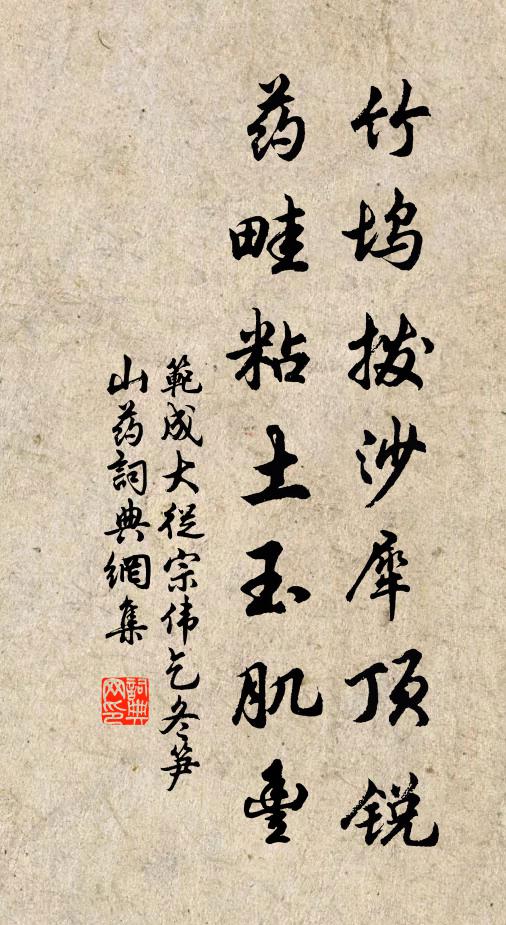 竹坞拨沙犀顶锐
药畦粘土玉肌豊
範成大従宗伟乞冬笋
山药詞典網集
詞典
网印